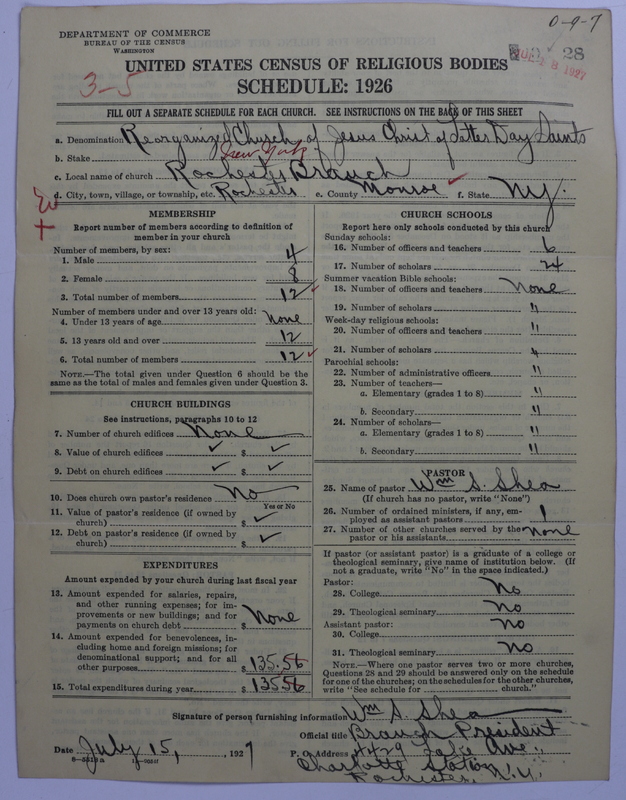 0-9-7
DEPARTMENT OF COMMERCE
BUREAU OF THE CENSUS
WASHINGTON
28
1927
UNITED STATES CENSUS OF RELIGIOUS BODIES
3-5
SCHEDULE: 1926
FILL OUT A SEPARATE SCHEDULE FOR EACH CHURCH. SEE INSTRUCTIONS ON THE BACK OF THIS SHEET
a. Denomination Reorganized Church of Jesus Christ of Latter Day Saints
b. Stake New York
c. Local name of church Rochester Branch
d. City, town, village, or township, etc. Rochester e. County Monroe f. State N.Y.
MEMBERSHIP
Report number of members according to definition of
member in your church
Number of members, by sex:
1. Male 4
2. Female 8
3. Total number of members 12
Number of members under and over 13 years old:
4. Under 13 years of age None
5. 13 years old and over 12
6. Total number of members 12
NOTE.—The total given under Question 6 should be
same as the total of males and females given under Question 3.
CHURCH BUILDINGS
See instructions, paragraphs 10 to 12
7. Number of church edifices None
8. Value of church edifices ✓ $ ✓
9. Debt on church edifices ✓ $ ✓
10. Does church own pastor's residence No
Yes or No
11. Value of pastor's residence (if owned by
church) $ ✓
12. Debt on pastor's residence (if owned by
church) $ ✓
EXPENDITURES
Amount expended by your church during last fiscal year
13. Amount expended for salaries, repairs,
and other running expenses; for im-
provements or new buildings; and for
payments on church debt $ None
14. Amount expended for benevolences, in-
cluding home and foreign missions; for
denominational support; and for all
other purposes $ 135.56
15. Total expenditures during year $ 135.56
CHURCH SCHOOLS
Report here only schools conducted by this church
Sunday schools:
16. Number of officers and teachers 6
17. Number of scholars 24
Summer vacation Bible schools:
18. Number of officers and teachers None
19. Number of scholars "
Week-day religious schools:
20. Number of officers and teachers "
21. Number of scholars "
Parochial schools:
22. Number of administrative officers "
23. Number of teachers—
a. Elementary (grades 1 to 8) "
b. Secondary "
24. Number of scholars—
a. Elementary (grades 1 to 8) "
b. Secondary "
PASTOR
25. Name of pastor Wm S. Shea
(If church has no pastor, write "None")
26. Number of ordained ministers, if any, em-
ployed as assistant pastors 1
27. Number of other churches served by the
pastor or his assistants None
If pastor (or assistant pastor) is a graduate of a college or
theological seminary, give name of institution below. (If
not a graduate, write "No" in the space indicated.)
Pastor:
28. College No
29. Theological seminary No
Assistant pastor:
30. College No
31. Theological seminary No
NOTE.—Where one pastor serves two or more churches,
Questions 28 and 29 should be answered only on the schedule
for one of the churches; on the schedules for the other churches,
write "See schedule for church."
Signature of person furnishing information Wm S. Shea
Official title Branch President
Date July 15, 1927 P. O. Address 4429 Lake Ave.,
Charlotte Station
Rochester, N.Y.